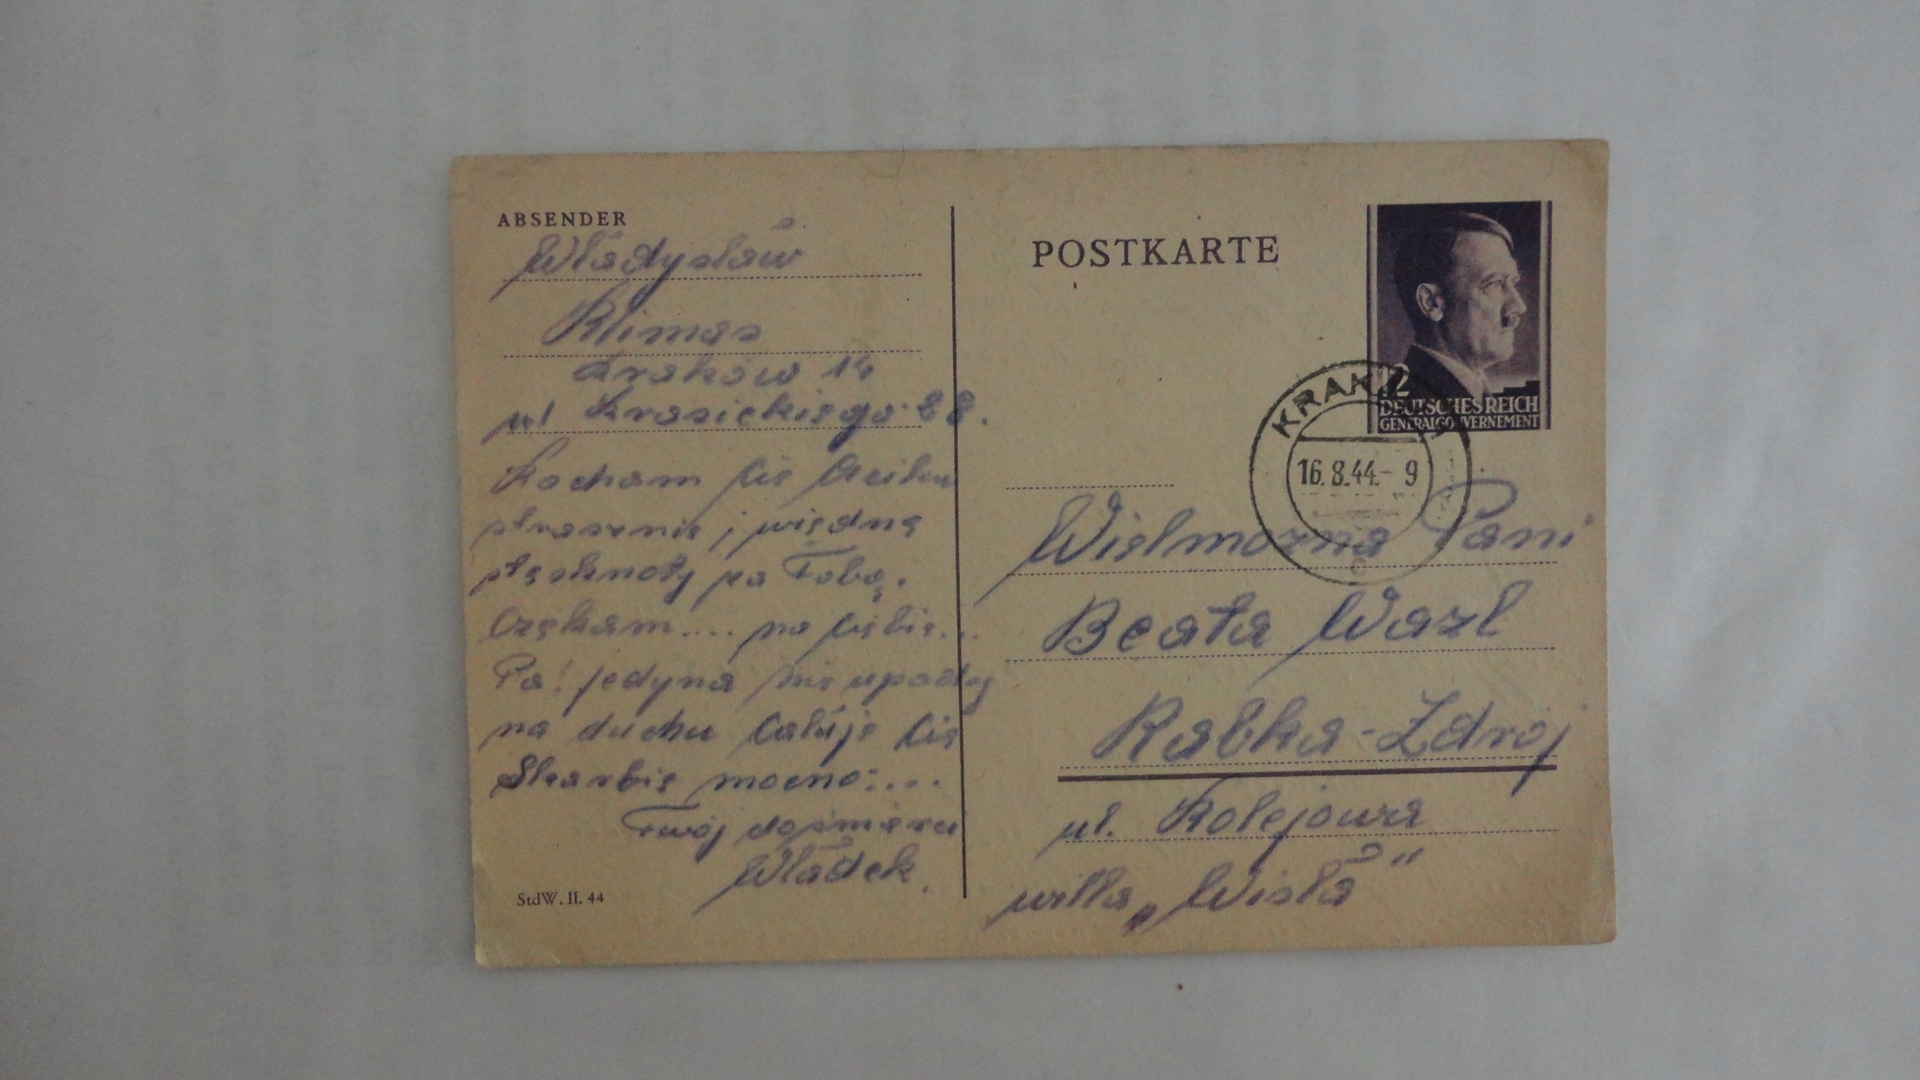 ABSENDER
Władysław
Klimas
Kraków 14
ul Krasickiego 28.
Kocham Cię
strasznie i więdnę
tęsknoty za Tobą.
Czekam.... na Ciebie...
Pa! jedyna nie upadaj
na duchu Całuję Cię
Skarbie mocno:....
Twój dośmierci
Władek.
StdW. II. 44
POSTKARTE
12
DEUTSCHES REICH
GENERALGOUVERNEMENT
KRAKAU
16.8.44.- 9
c
Wielmożna Pani
Beata Wazl
Rabka-Zdrój
ul. Kolejowa
willa „Wisła"